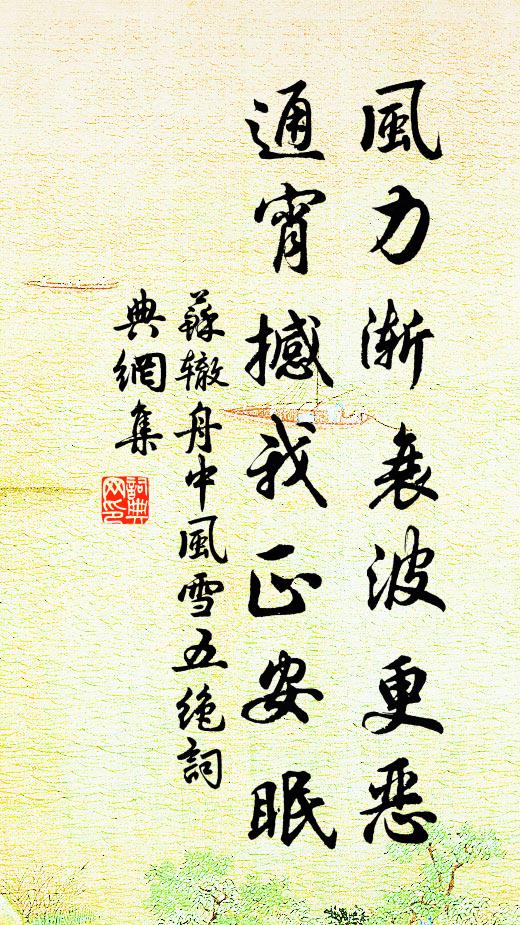 風力漸衰波更惡
通宵撼我正安眠
蘇辙舟中風雪五绝詞
典網集
詞典网印